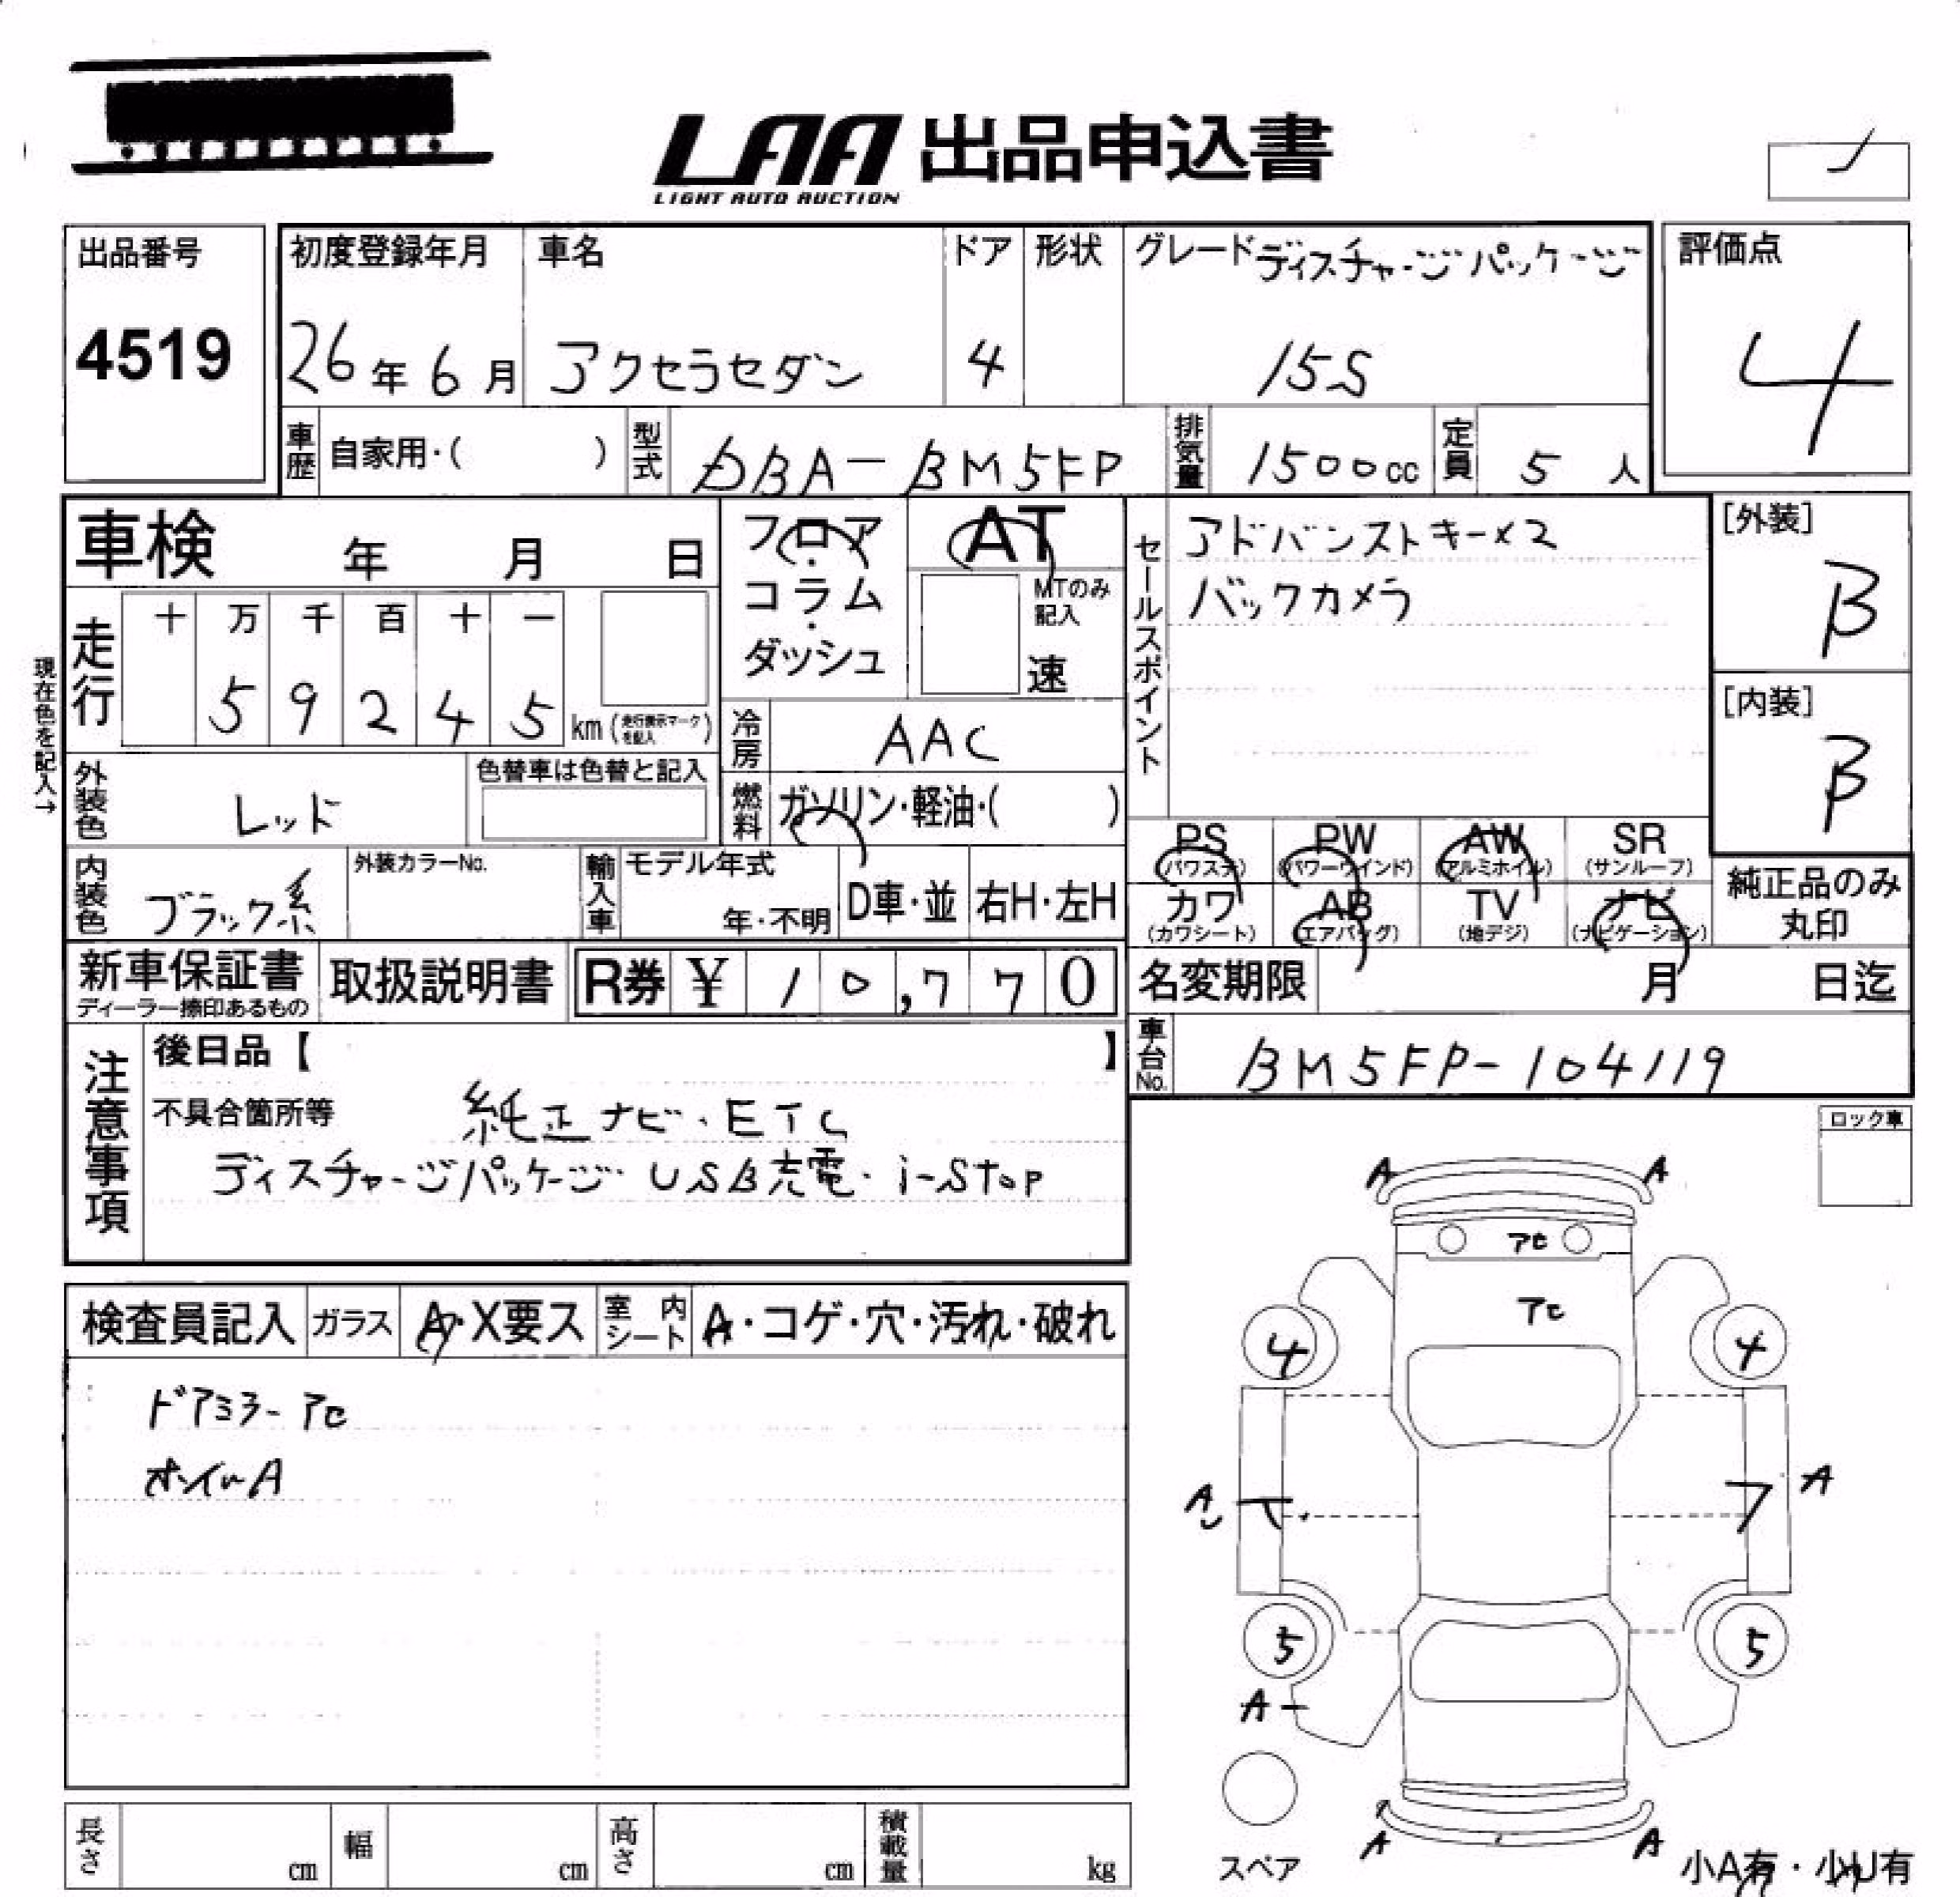 LAA 出品申込書
LIGHT AUTO AUCTION
出品番号
4519
初度登録年月
26年 6月
車名
アクセラセダン
ドア
4
形状
グレード ディスチャージパッケージ
15S
評価点
4
車歴 自家用・( )
型式 DBA-BM5FP
排気量 1500cc
定員 5人
車検 年 月 日
フロア・コラム・ダッシュ
AT
MTのみ記入
速
セールスポイント
アドバンストキー×2
バックカメラ
[外装]
B
[内装]
B
現在色を記入→
走行
十 万 千 百 十 一
5 9 2 4 5 km (走行表示マークを記入)
冷房 AAC
外装色 レッド
色替車は色替と記入
燃料 ガソリン・軽油・( )
PS (パワステ)
PW (パワーウインド)
AW (アルミホイル)
SR (サンルーフ)
カワ (カワシート)
AB (エアバッグ)
TV (地デジ)
ナビ (ナビゲーション)
純正品のみ丸印
内装色 ブラック系
外装カラーNo.
輸入車
モデル年式
年・不明
D車・並
右H・左H
新車保証書
ディーラー捺印あるもの
取扱説明書
R券 ¥ 10,770
名変期限 月 日迄
車台No. BM5FP-104119
注意事項
後日品【 】
不具合箇所等 純正ナビ・ETC
ディスチャージパッケージ・USB充電・i-stop
ロック車
A A
アセ
アセ
4 4
A A
5 5
A
A A
検査員記入
ガラス A・X要ス
室内シート A・コゲ・穴・汚れ・破れ
ドアミラーアセ
ホイルA
スペア
小A有・小U有
長さ cm
幅 cm
高さ cm
積載量 kg